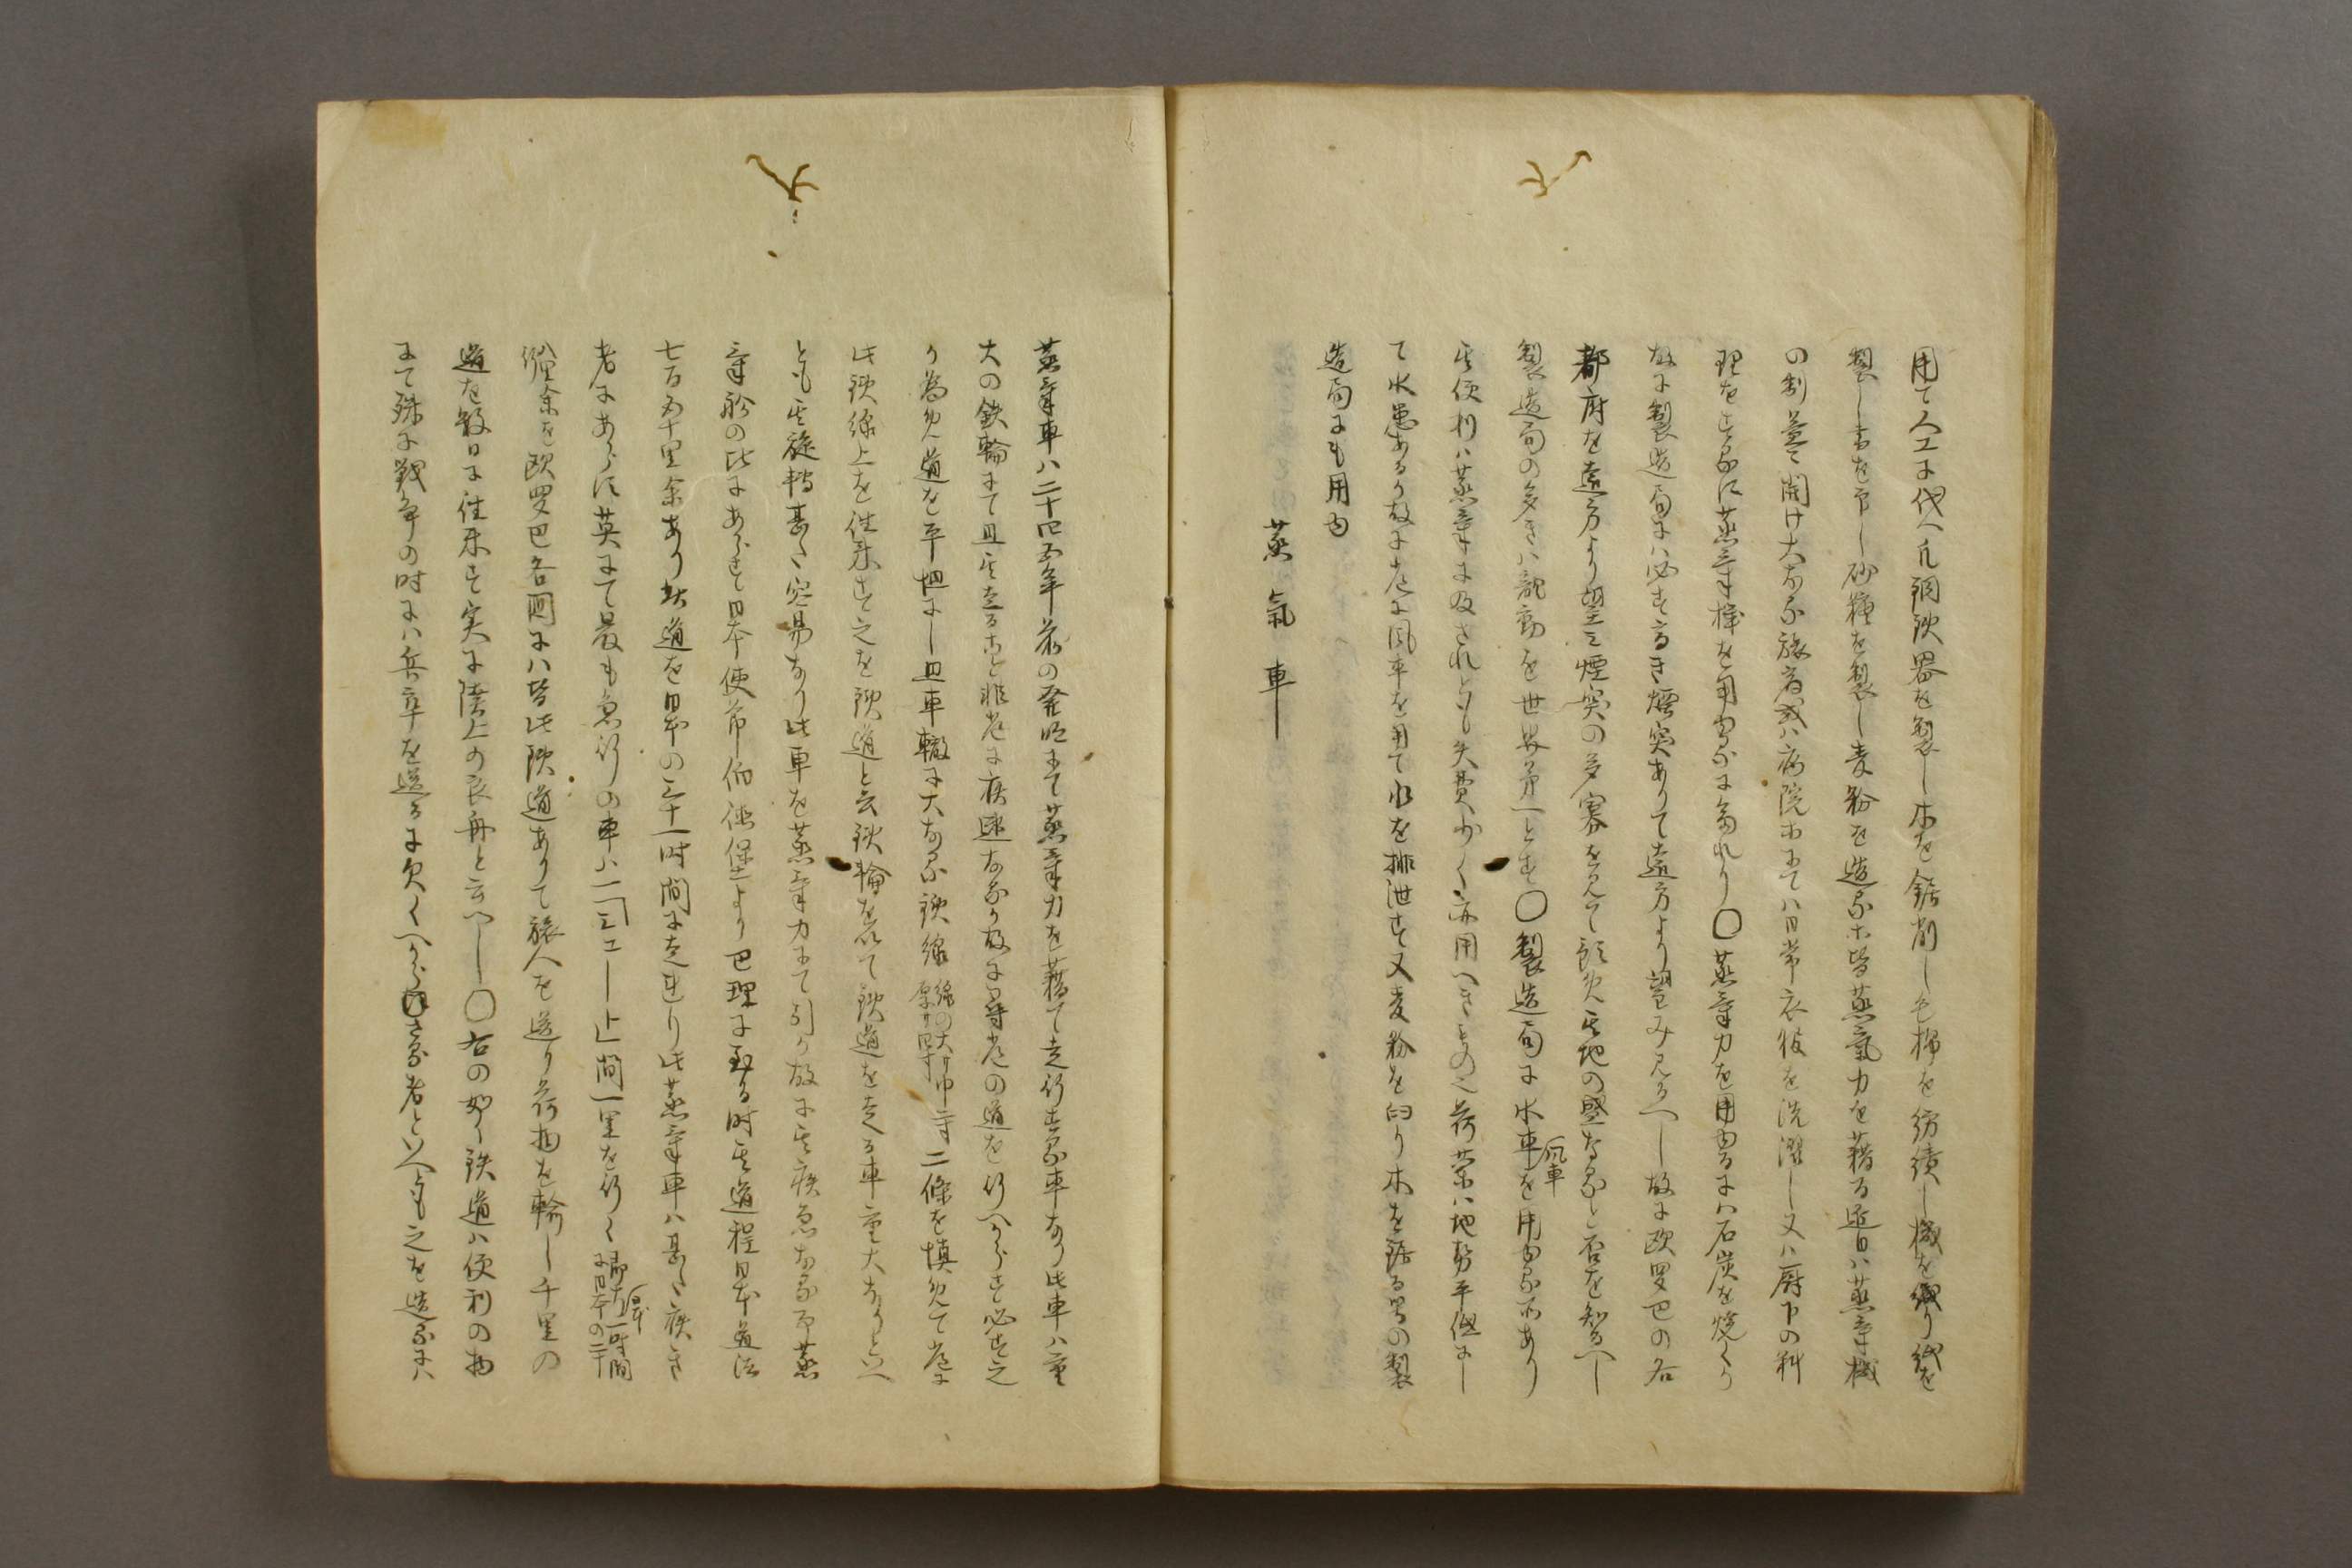 用て人工に代へ凡銅鉄器を製し木を鋸削し色棉を紡績し機を織り紙を
製し書を印し砂糖を製し麦粉を造る等皆蒸氣力を藉る近日ハ蒸氣機
の制益開け大なる旅宿或ハ病院等にてハ日常衣服を洗濯し又ハ厨下の料
理をするに蒸氣機を用ゆるに至れり〇蒸氣力を用ゆるにハ石炭を焼くか
故に製造局にハ必す高き煙突ありて遠方より望み見るへし故に欧罗巴の各
都府を遠方より望ミ煙突の多寡を見て預め其地の盛なると否を知るへし
製造局の多きハ龍動を世界第一とす〇製造局に水車風車を用ゆる所あり
其便利ハ蒸氣に及されとも失費少く亦用へきもの也荷蘭ハ地勢平低にし
て水患あるか故に尤に風車を用て水を排泄す又麦粉を臼り木を鋸る等の製
造局にも用ゆ
蒸氣車
蒸氣車ハ二十四五年前の発明にて蒸氣力を藉て走行する車なり此車ハ重
大の鉄輪にて且其走ること非常に疾速なるか故に尋常の道を行へからす必す之
か為め道を平坦にし且車轍に大なる鉄線線の大サ巾二寸厚サ四寸二條を慎めて常に
此鉄線上を往来す之を鉄道と云鉄輪を以て鉄道を走る車重大なりといへ
とも其旋轉甚た容易なり此車を蒸氣力にて引か故に其疾急なる事蒸
氣船の比にあらす日本使節伯德堡より巴理に至る時其道程日本道法
七百五十里余あり鉄道を日本の三十一時間に走れり此蒸氣車ハ甚た疾き
者にあらす英にて最も急行の車ハ一「ミニート」間一里を行く即大日本一時間に日本の二十
餘里余を欧罗巴各国にハ皆此鉄道ありて旅人を送り荷物を輸し千里の
道を数日に往来す実に陸上の良舟と云へし〇右の如く鉄道ハ便利の物
にて殊に戦争の時にハ兵卒を送るに欠くへからさる者といへとも之を造るにハ